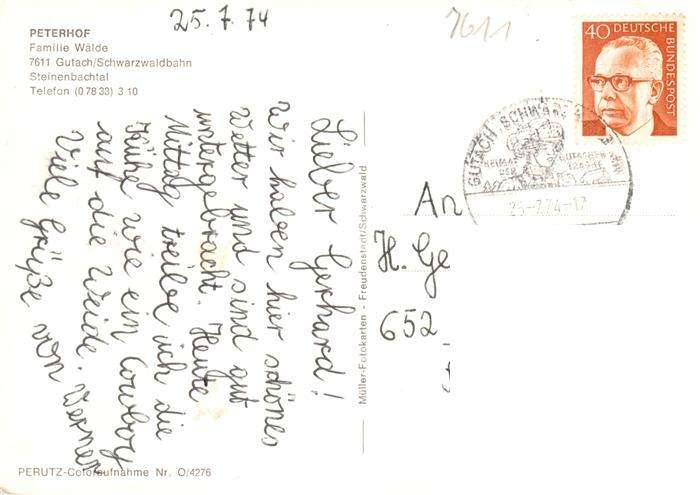 25.7.74
7611
PETERHOF
Familie Wälde
7611 Gutach/Schwarzwaldbahn
Steinenbachtal
Telefon (0 78 33) 3 10
40 DEUTSCHE
BUNDESPOST
GUTACH (SCHWARZ
HEIMAT
DER
GUTACHER
25.-7.74-17
Lieber Gerhard!
Wir haben hier schönes
Wetter und sind gut
untergebracht. Heute
Mittag treibe ich die
Kühe wie ein Cowboy
auf die Weide.
Viele Grüße von Werner
Müller-Fotokarten - Freudenstadt/Schwarzwald
An
H. Ge
652
PERUTZ-Coloraufnahme Nr. O/4276